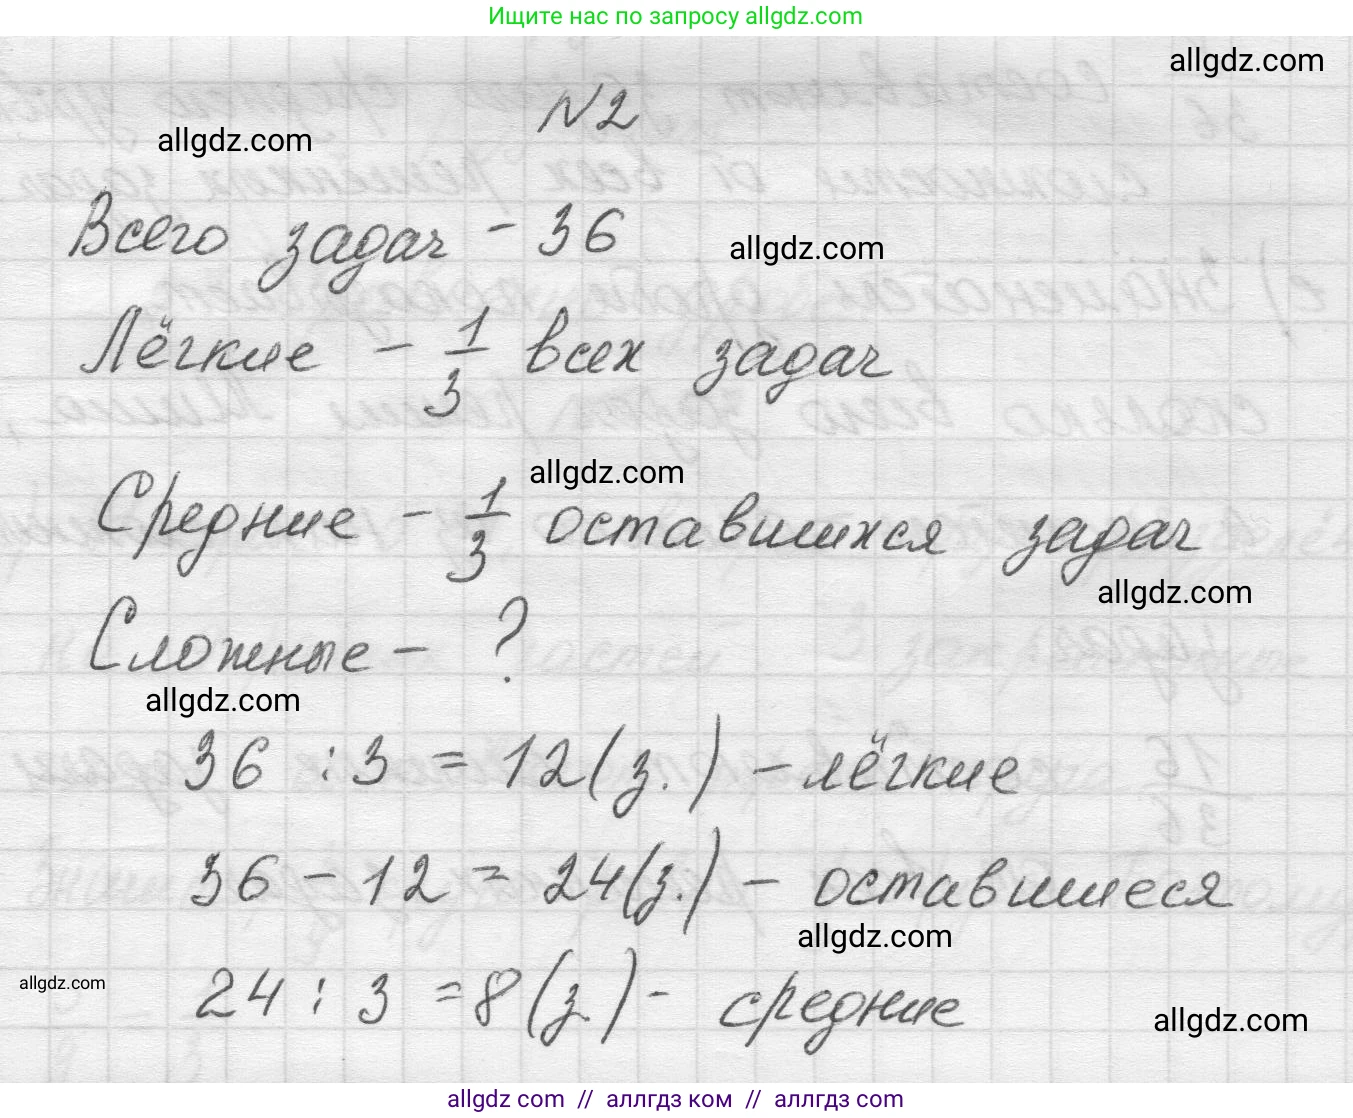 Ищите нас по запросу allgdz.com
allgdz.com
N2
allgdz.com
Всего задач - 36
allgdz.com
Лёгкие - 1/3 всех задач
allgdz.com
Средние - 1/3 оставшихся задач
allgdz.com
Сложные - ?
allgdz.com
36 : 3 = 12 (з.) - лёгкие
36 - 12 = 24 (з.) - оставшиеся
allgdz.com
allgdz.com
24 : 3 = 8 (з.) - средние
allgdz.com
allgdz com // аллгдз ком // аллгдз com